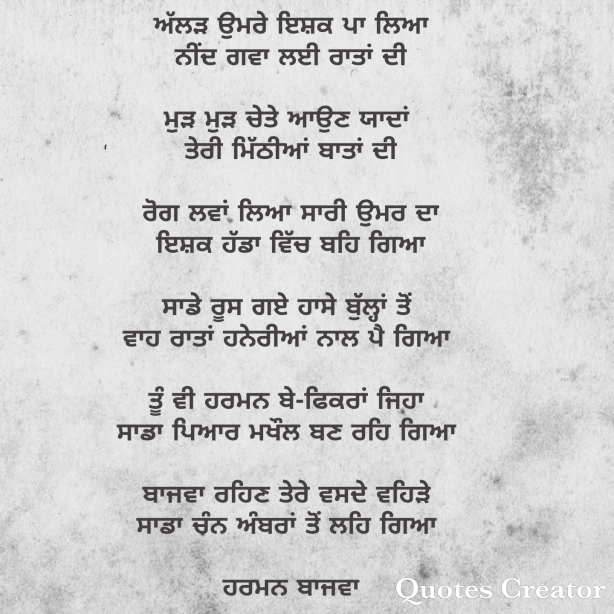 ਅੱਲੜ ਉਮਰੇ ਇਸ਼ਕ ਪਾ ਲਿਆ
ਨੀਂਦ ਗਵਾ ਲਈ ਰਾਤਾਂ ਦੀ
ਮੁੜ ਮੁੜ ਚੇਤੇ ਆਉਣ ਯਾਦਾਂ
ਤੇਰੀ ਮਿੱਠੀਆਂ ਬਾਤਾਂ ਦੀ
ਰੋਗ ਲਵਾਂ ਲਿਆ ਸਾਰੀ ਉਮਰ ਦਾ
ਇਸ਼ਕ ਹੱਡਾ ਵਿੱਚ ਬਹਿ ਗਿਆ
ਸਾਡੇ ਰੂਸ ਗਏ ਹਾਸੇ ਬੁੱਲ੍ਹਾਂ ਤੋਂ
ਵਾਹ ਰਾਤਾਂ ਹਨੇਰੀਆਂ ਨਾਲ ਪੈ ਗਿਆ
ਤੂੰ ਵੀ ਹਰਮਨ ਬੇ-ਫਿਕਰਾਂ ਜਿਹਾ
ਸਾਡਾ ਪਿਆਰ ਮਖੌਲ ਬਣ ਰਹਿ ਗਿਆ
ਬਾਜਵਾ ਰਹਿਣ ਤੇਰੇ ਵਸਦੇ ਵਹਿੜੇ
ਸਾਡਾ ਚੰਨ ਅੰਬਰਾਂ ਤੋਂ ਲਹਿ ਗਿਆ
ਹਰਮਨ ਬਾਜਵਾ
Quotes Creator